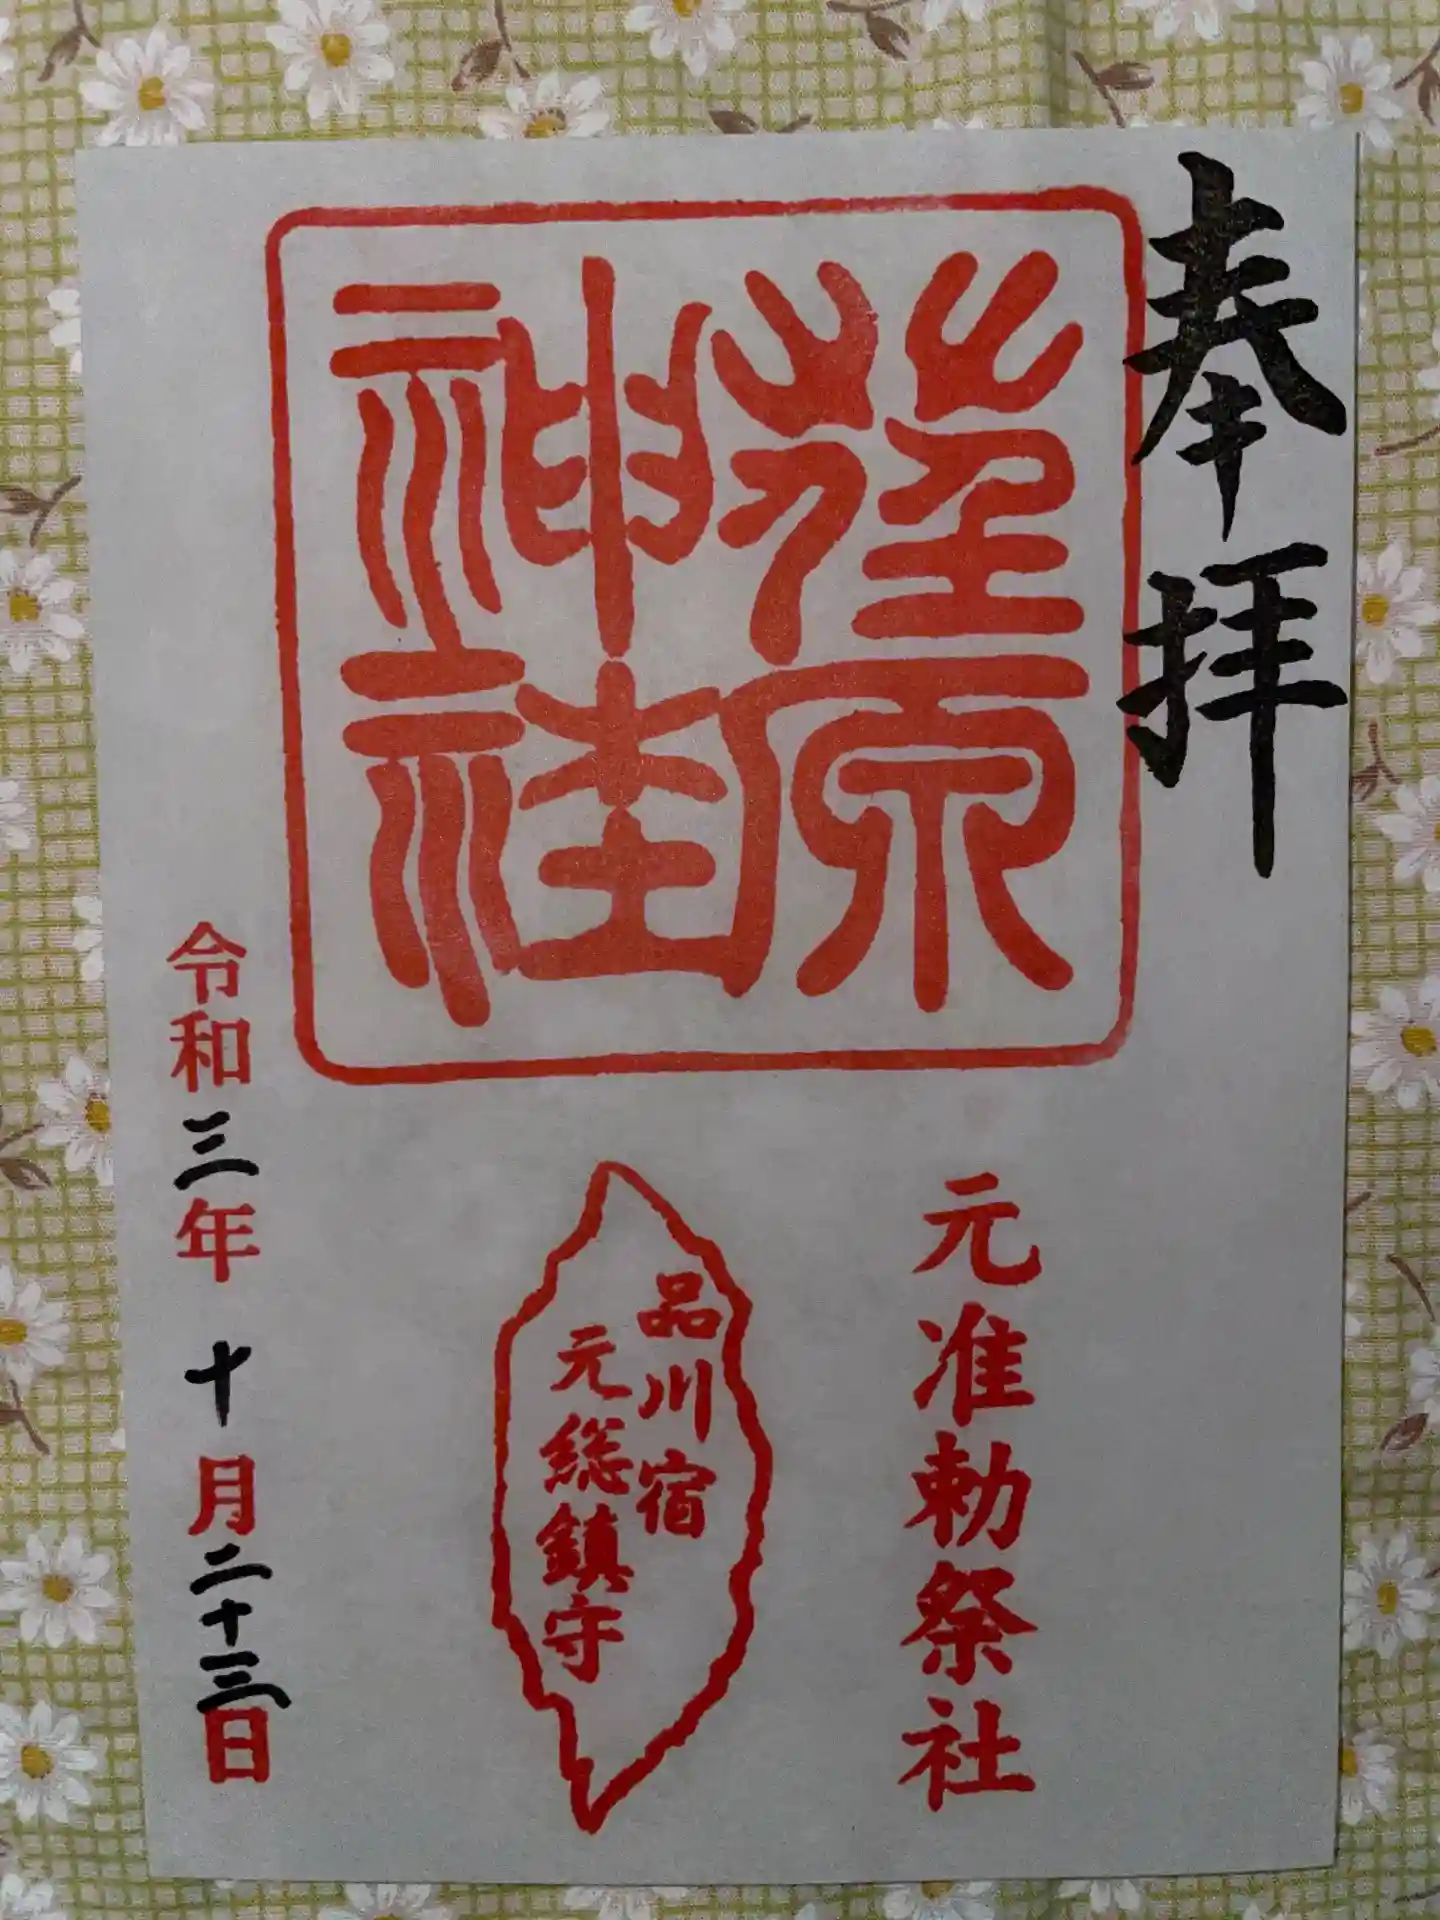 奉拝
蒲原
神社
元准勅祭社
品川宿
元総鎮守
令和三年 十月二十三日